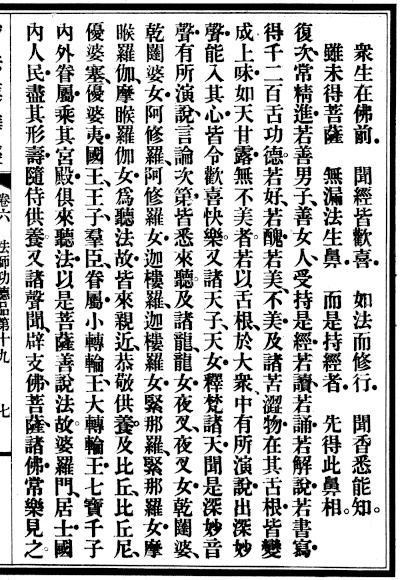 眾生在佛前　聞經皆歡喜　如法而修行　聞香悉能知
雖未得菩薩　無漏法生鼻　而是持經者　先得此鼻相
復次常精進若善男子善女人受持是經若讀若誦若解說若書寫
得千二百舌功德若好若醜若美不美及諸苦澀物在其舌根皆變
成上味如天甘露無不美者若以舌根於大眾中有所演說出深妙
聲能入其心皆令歡喜快樂又諸天子天女釋梵諸天聞是深妙音
聲有所演說言論次第皆悉來聽及諸龍龍女夜叉夜叉女乾闥婆
乾闥婆女阿修羅阿修羅女迦樓羅迦樓羅女緊那羅緊那羅女摩
睺羅伽摩睺羅伽女為聽法故皆來親近恭敬供養及比丘比丘尼
優婆塞優婆夷國王王子羣臣眷屬小轉輪王大轉輪王七寶千子
內外眷屬乘其宮殿俱來聽法以是菩薩善說法故婆羅門居士國
內人民盡其形壽隨侍供養又諸聲聞辟支佛菩薩諸佛常樂見之
卷六　法師功德品第十九　七